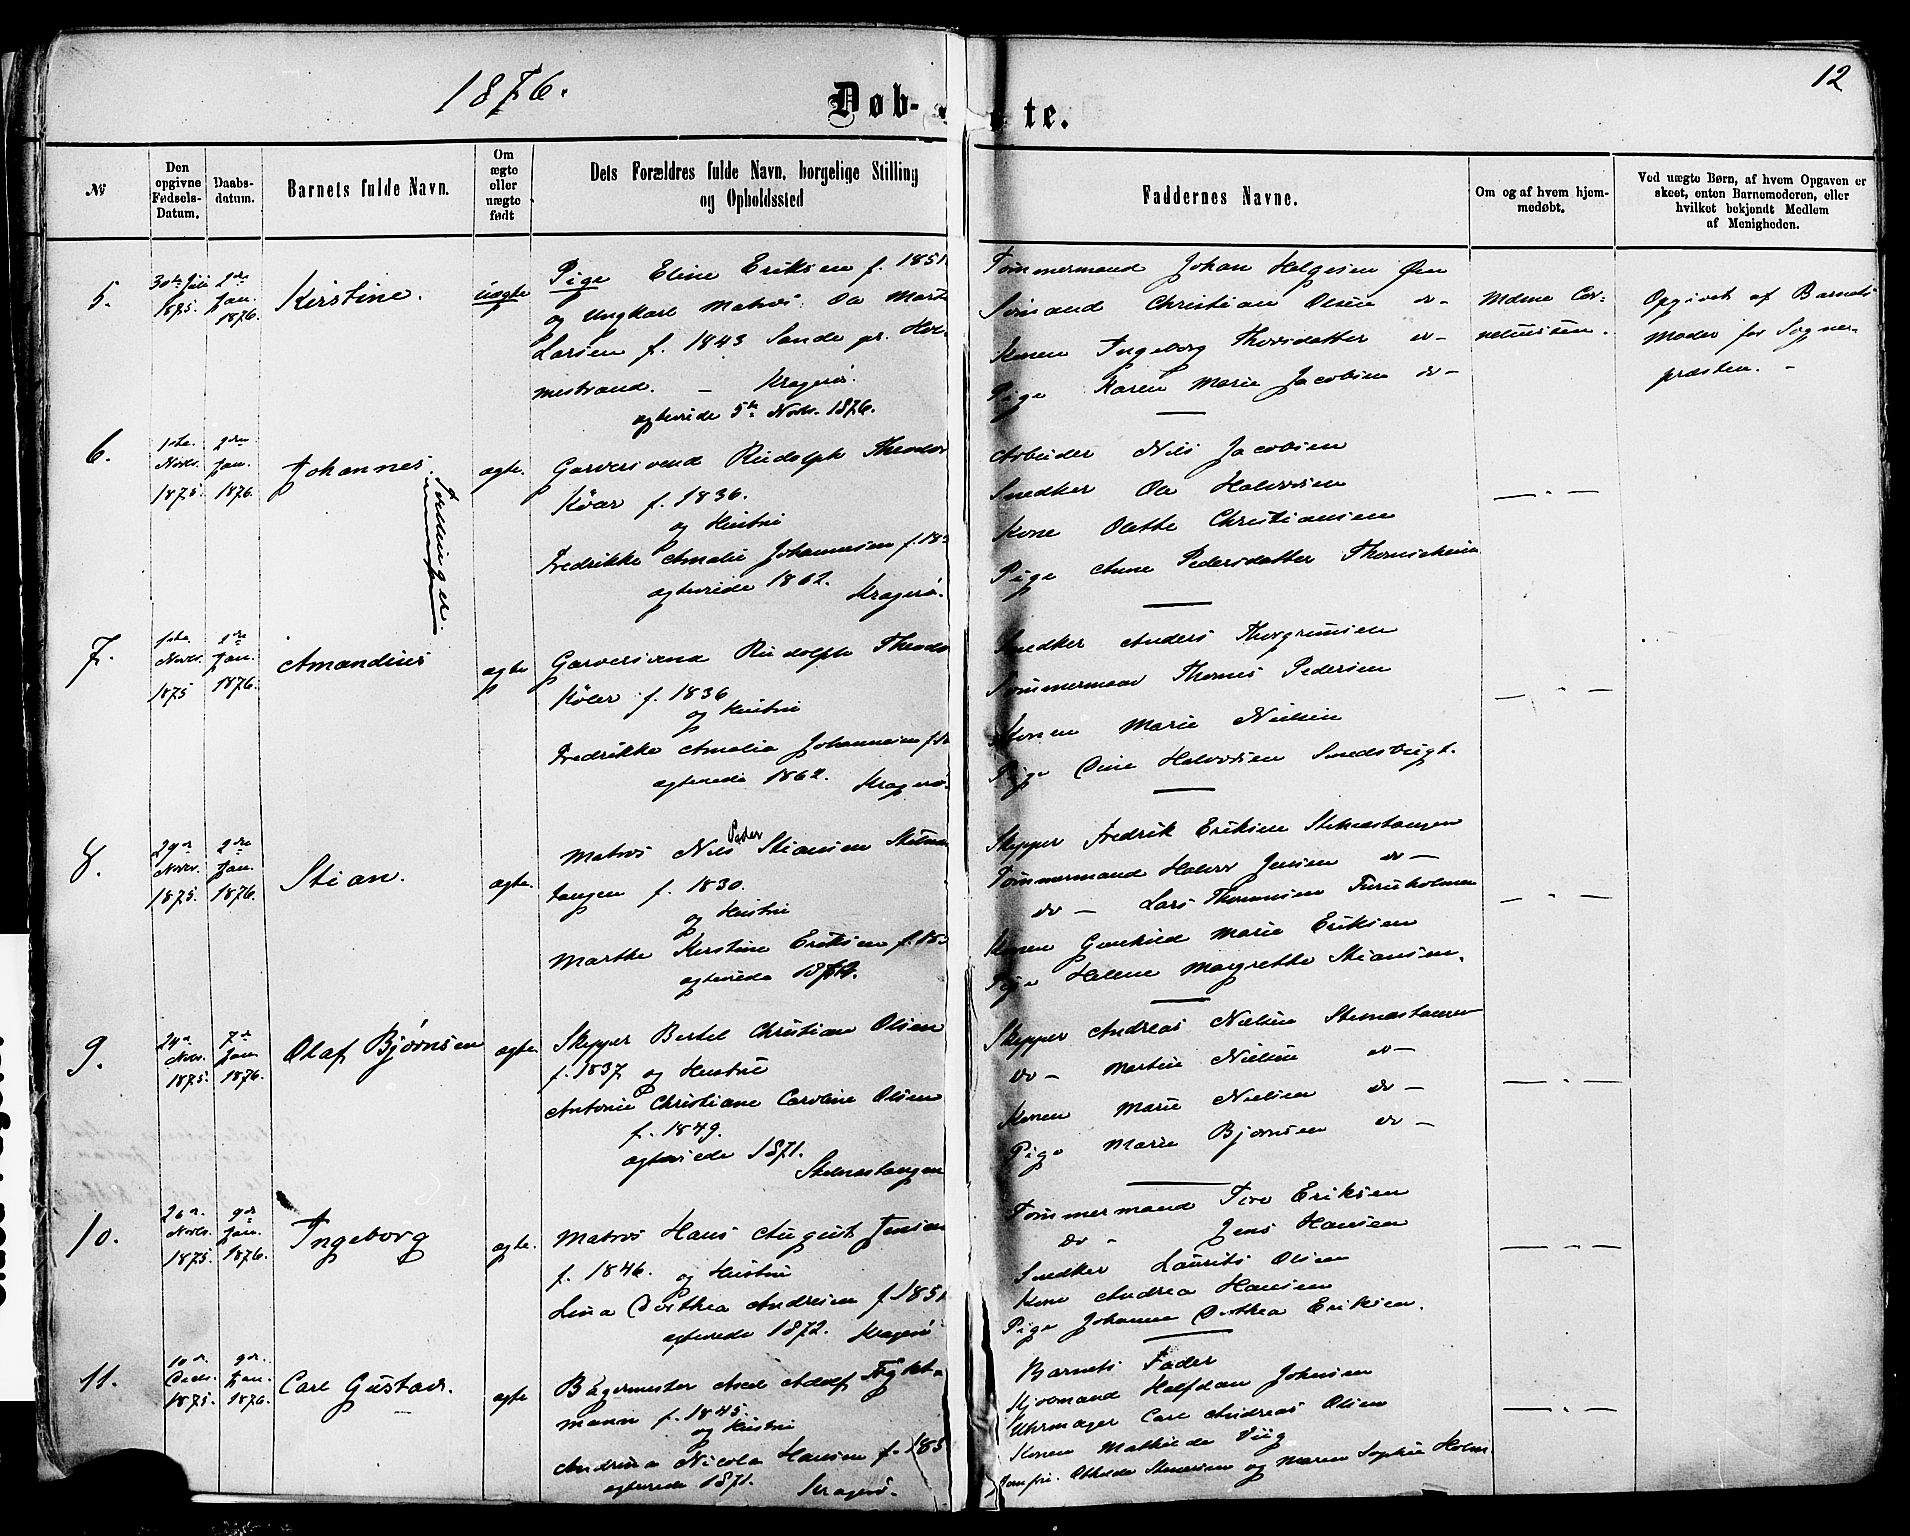 1876.
12
Døb-
te.
№
Den opgivne Fødsels-Datum.
Daabs-datum.
Barnets fulde Navn.
Om ægte eller uægte født
Dets Forældres fulde Navn, borgelige Stilling og Opholdssted
Faddernes Navne.
Om og af hvem hjem-medøbt.
Ved uægte Børn, af hvem Opgaven er skeet, enten Barnemoderen, eller hvilket bekjendt Medlem af Menigheden.
5.
30te Juli 1875.
2den Jan. 1876.
Kirstine.
uægte
Pige Eline Eriksen f. 1851
og Ungkarl Matros Ole Martin
Larsen f. 1843 Sande pr. Hol-
mestrand. – Kragerø.
ægteviede 5te Novbr. 1876.
Tømmermand Johan Helgesen Øen
Sømand Christian Olsen do-
Konen Ingeborg Thorsdatter do-
Pige Karen Marie Jacobsen do-
Mdme Cor-
neliussen.
Opgivet af Barnets
Moder for Sogne-
præsten. -
6.
1ste Novbr. 1875.
2den Jan. 1876.
Johannes
Tvillinger.
ægte.
Garversvend Rudolph Theodor
Köar f. 1836.
og Hustru
Fredrikke Amalie Johannesen f. 18
ægteviede 1862. Kragerø.
Arbeider Nils Jacobsen
Snedker Ole Halvorsen
Kone Olette Christiansen
Pige Anne Pedersdatter
— " —
7.
1ste Novbr. 1875
2den Jan. 1876.
Amandus
ægte
Garversvend Rudolph Theodor
Köler f. 1836
og Hustru
Fredrikke Amalia Johannesen f.
ægteviede 1862. Kragerø.
Snedker Anders Thorgrimsen
Tømmermand Thomas Pedersen
Konen Marie Nielsen
Pige Oline Halvorsen Smedsbugt.
— " —
8.
29de Novbr. 1875.
2den Jan. 1876.
Stian.
ægte.
Matros Nils Peder Stiansen Stilnæs
tangen f. 1830.
og Hustru
Marthe Kirstine Eriksen f. 18
ægteviede
Skipper Fredrik Eriksen Stilnæstangen
Tømmermand Halvor Jensen do —
do — Lars Thommesen Furuholmen
Konen Gunhild Marie Eriksen
Pige Helene Margrethe Stiansen.
— " —
9.
24de Novbr. 1875.
7de Jan. 1876.
Olaf Bjørnsen
ægte.
Skipper Bertel Christian Olsen
f. 1837 og Hustru
Antonie Christiane Caroline Olsen
f. 1849.
ægteviede 1871.
Stilnæstangen
Skipper Andreas Nielsen Stilnæstangen
do — Martin Nielsen do —
Konen Marie Nielsen do —
Pige Marie Bjørnsen do —
— " —
10.
26de Novbr. 1875.
9de Jan. 1876.
Ingeborg
ægte.
Matros Hans August Jensen
f. 1846. og Hustru
Lina Dorthea Andresen f. 1851
ægteviede 1872. Kragerø
Tømmermand Tore Eriksen
do " Jens Hansen
Snedker Laurits Olsen
Kone Andrea Hansen
Pige Johanne Dorthea Eriksen.
— " —
11.
10de Decbr. 1875.
9de Jan. 1876.
Carl Gustav.
ægte
Bøgermester Axel Adolf
mann f. 1845.
og Hustru
Andrina Nicola Hansen f. 185
ægteviede 1871. Kragerø.
Barnets Fader
Styrmand Halfdan Johnsen
Uhrmager Carl Andreas Olsen
Konen Mathilde Viig
Jomfru. Othilde Stenersen og Maren Sophie Holm
— " —